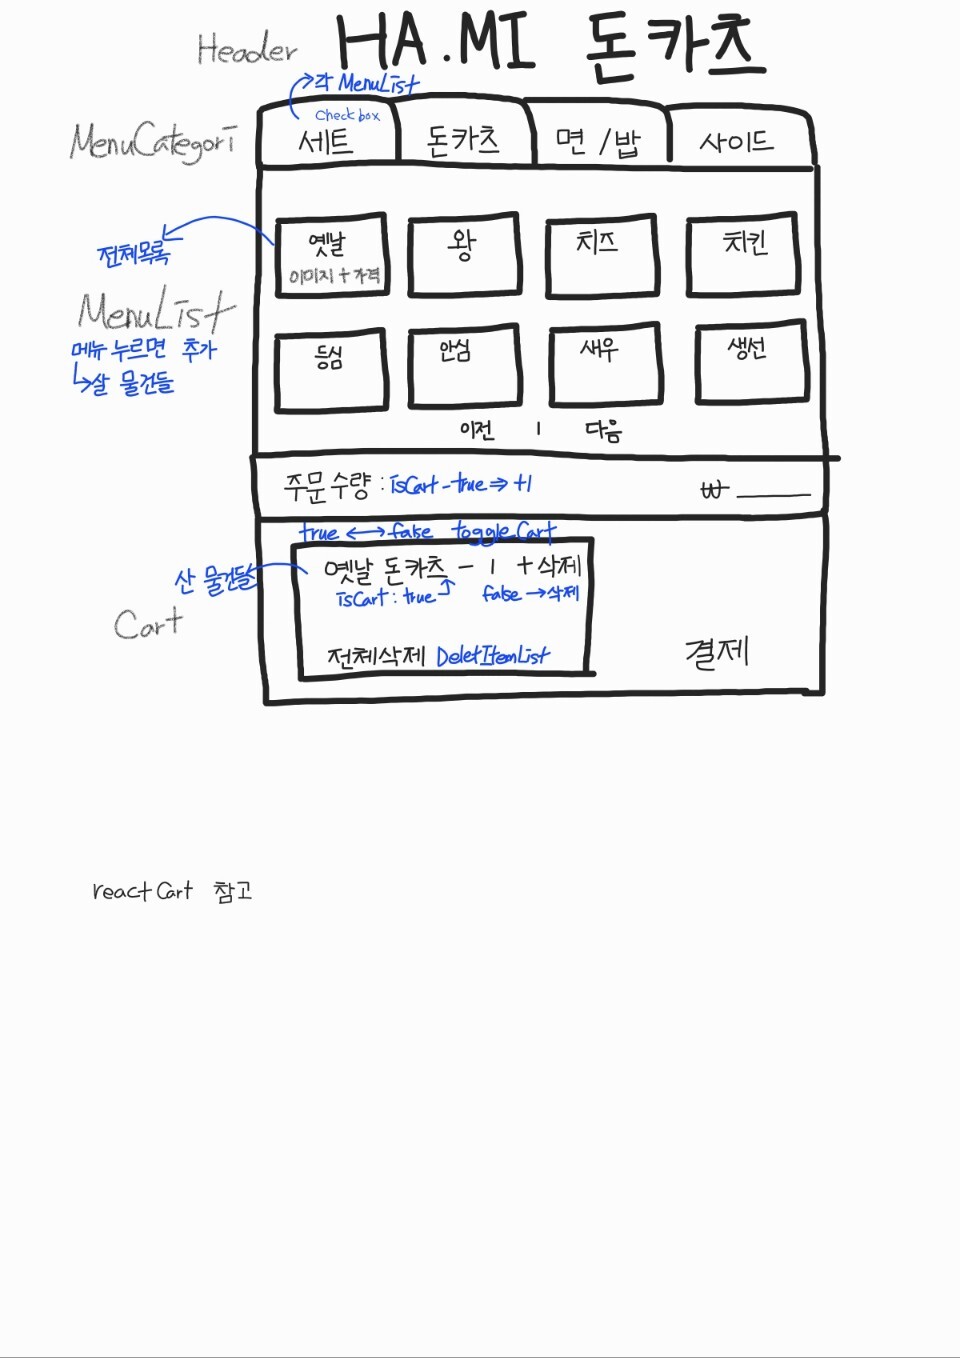 Header HA.MI 돈카츠
각 MenuList
Checkbox
MenuCategori 세트 돈카츠 면/밥 사이드
전체목록
옛날 왕 치즈 치킨
이미지+가격
MenuList
메뉴 누르면 추가
살 물건들
등심 안심 새우 생선
이전 | 다음
주문 수량 : isCart-true⇒+1 ₩ ______
true ↔ false toggleCart
산 물건들
옛날 돈카츠 - 1 + 삭제
isCart: true false → 삭제
Cart
전체삭제 DeletItemList 결제
reactCart 참고